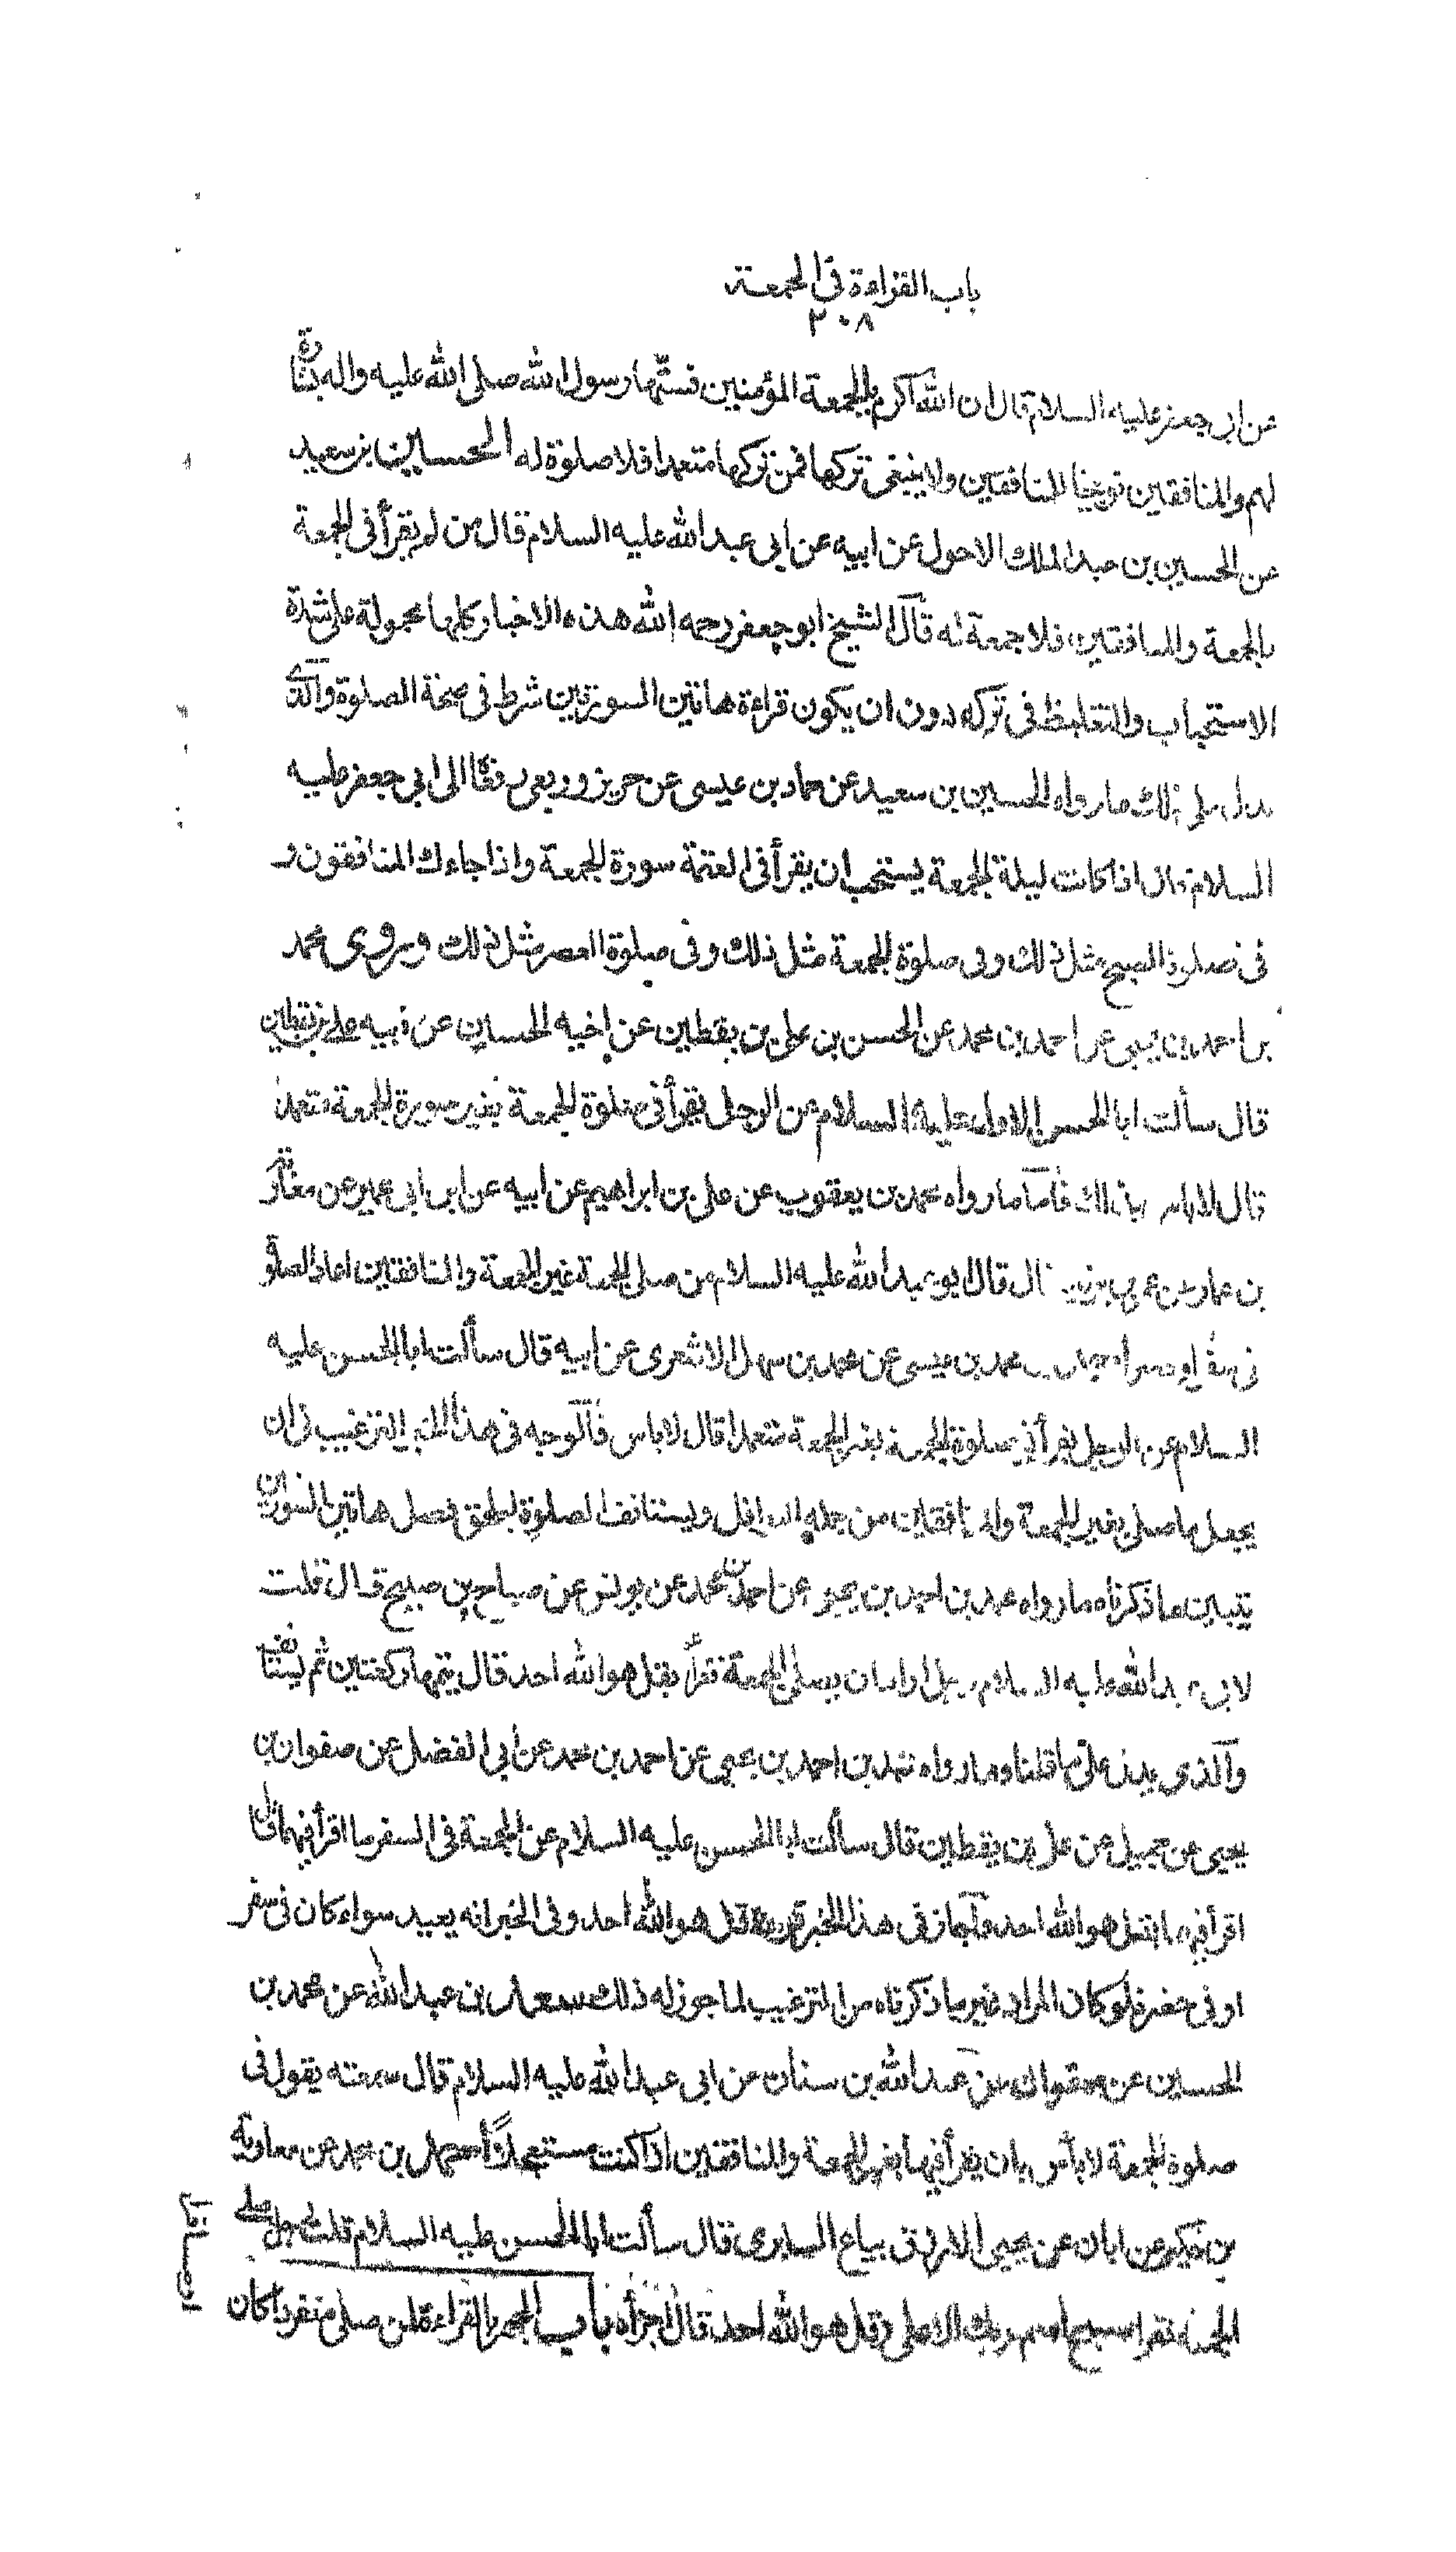 باب القراءة في الجمعة
٢٠٨
عن ابي جعفر عليه السلام قال ان الله اكرم بالجمعة المؤمنين فسنّها رسول الله صلى الله عليه واله بشارة
لهم والمنافقين توبيخا للمنافقين ولا ينبغى تركها فمن تركها متعمدا فلا صلوة له الحسين بن سعيد
عن الحسين بن عبد الملك الاحول عن ابيه عن ابي عبد الله عليه السلام قال من لم يقرأ فى الجمعة
بالجمعة والمنافقين فلا جمعة له قال الشيخ ابو جعفر رحمه الله هذه الاخبار كلها محمولة على شدة
الاستحباب والتغليظ فى تركه دون ان يكون قراءة هاتين السورتين شرط فى صحة الصلوة والذى
يدل على ذلك ما رواه الحسين بن سعيد عن حماد بن عيسى عن حريز وربعى رفعاه الى ابي جعفر عليه
السلام قال اذا كانت ليلة الجمعة يستحب ان يقرأ فى العتمة سورة الجمعة واذا جاءك المنافقون و
فى صلوة الصبح مثل ذلك وفى صلوة الجمعة مثل ذلك وفى صلوة العصر مثل ذلك وروى محمد
بن احمد بن يحيى عن احمد بن محمد عن الحسن بن على بن يقطين عن اخيه الحسين عن ابيه على بن يقطين
قال سألت ابا الحسن الاول عليه السلام عن الرجل يقرأ فى صلوة الجمعة بغير سورة الجمعة متعمدا
قال لا باس بذلك فاما ما رواه محمد بن يعقوب عن على بن ابراهيم عن ابيه عن ابن ابى عمير عن معاوية
بن عمار عن عمر بن يزيد قال قال ابو عبد الله عليه السلام من صلى الجمعة بغير الجمعة والمنافقين اعاد الصلوة
فى سفر او حضر محمد بن عيسى عن محمد بن سهل الاشعرى عن ابيه قال سألت ابا الحسن عليه
السلام عن الرجل يقرأ فى صلوة الجمعة بغير الجمعة متعمدا قال لا باس فالوجه فى هذا الخبر الترغيب فى ان
يجعل ما صلى بغير الجمعة والمنافقين من جملة النوافل ويستانف الصلوة ليلحق فضل هاتين السورتين
يتبين ما ذكرناه ما رواه محمد بن احمد بن يحيى عن احمد بن محمد عن يونس عن صباح بن صبيح قال قلت
لابى عبد الله عليه السلام رجل اراد ان يصلى الجمعة فقرأ بقل هو الله احد قال يتمها ركعتين ثم يستانف
والذى يدل على ما قلناه ما رواه محمد بن احمد بن يحيى عن احمد بن محمد عن ابى الفضل عن صفوان بن
يحيى عن جميل عن على بن يقطين قال سألت ابا الحسن عليه السلام عن الجمعة فى السفر ما اقرأ فيهما قال
اقرأ فيهما بقل هو الله احد فاجاز فى هذا الخبر قراءة قل هو الله احد وفى الخبر انه يعيد سواء كان فى سفر
او فى حضر فلو كان المراد غير ما ذكرناه من الترغيب لما جوز له ذلك سعد بن عبد الله عن محمد بن
الحسين عن صفوان عن عبد الله بن سنان عن ابى عبد الله عليه السلام قال سمعته يقول فى
صلوة الجمعة لا بأس بان يقرأ فيها بغير الجمعة والمنافقين اذا كنت مستعجلا سهل بن محمد عن معاوية
بن حكيم عن ابان عن يحيى الازرق بياع السابرى قال سألت ابا الحسن عليه السلام قلت رجل صلى
الجمعة فقرا سبح اسم ربك الاعلى وقل هو الله احد قال اجزأه باب الجهر بالقراءة لمن صلى منفردا كان